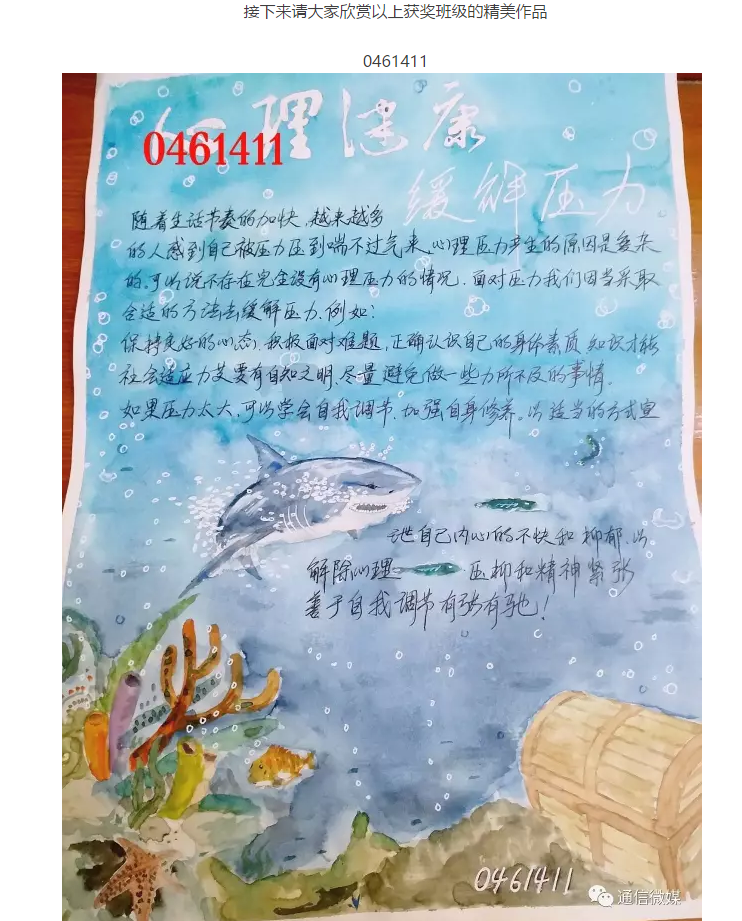 接下来请大家欣赏以上获奖班级的精美作品
0461411
心理健康
0461411
缓解压力
随着生活节奏的加快，越来越多
的人感到自己被压力压到喘不过气来，心理压力产生的原因是复杂
的。可以说不存在完全没有心理压力的情况。面对压力我们因当采取
合适的方法去缓解压力。例如：
保持良好的心态，积极面对难题，正确认识自己的身体素质 知识才能
社会适应力 要有自知之明、尽量避免做一些力所不及的事情。
如果压力太大，可以学会自我调节，加强自身修养。以适当的方式宣
泄自己内心的不快和抑郁，以
解除心理 压抑和精神紧张
善于自我调节 有张有弛！
0461411
通信微媒